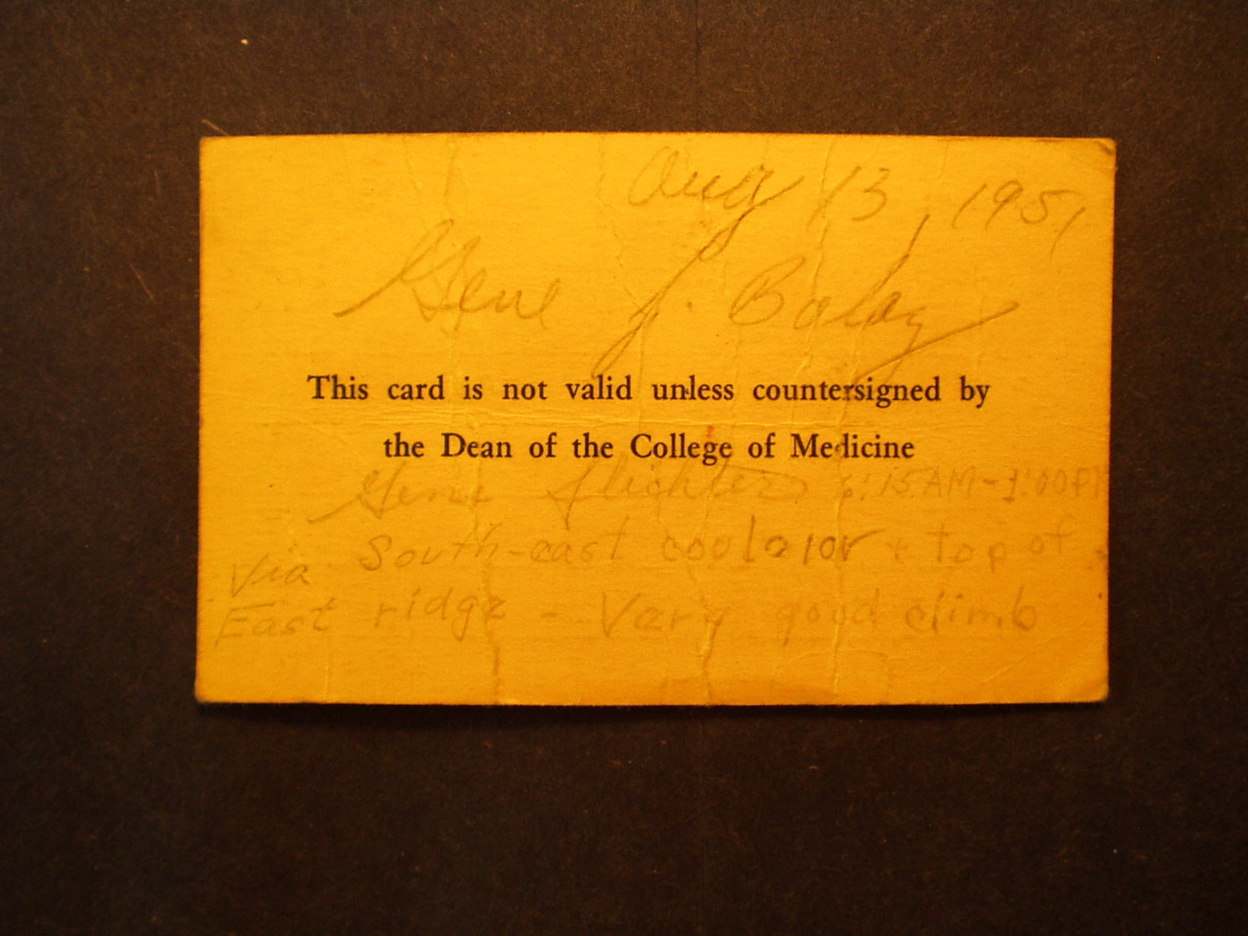 Aug 13, 1951
Gene J. Balaz
This card is not valid unless countersigned by
the Dean of the College of Medicine
Gene :15 AM - 1:00 PM
Via South-east couloior + top of
East ridge - Very good climb